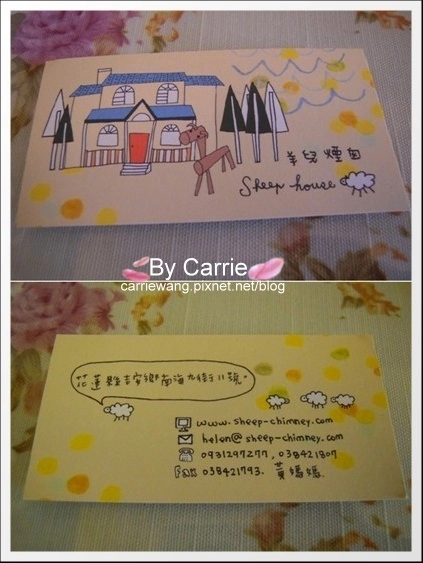 羊兒煙囪
Sheep house
By Carrie
carriewang.pixnet.net/blog
花蓮縣吉安鄉南海九街11號。
www.sheep-chimney.com
helen@sheep-chimney.com
0931297277, 038421807
Fax 038421793. 黃媽媽.